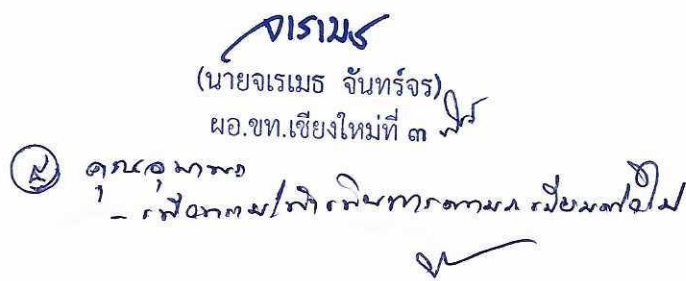 จเรเมธ
(นายจเรเมธ จันทร์จร)
ผอ.ขท.เชียงใหม่ที่ ๓
คุณอุมาพร
- เพื่อทราบ/ดำเนินการตามระเบียบต่อไป